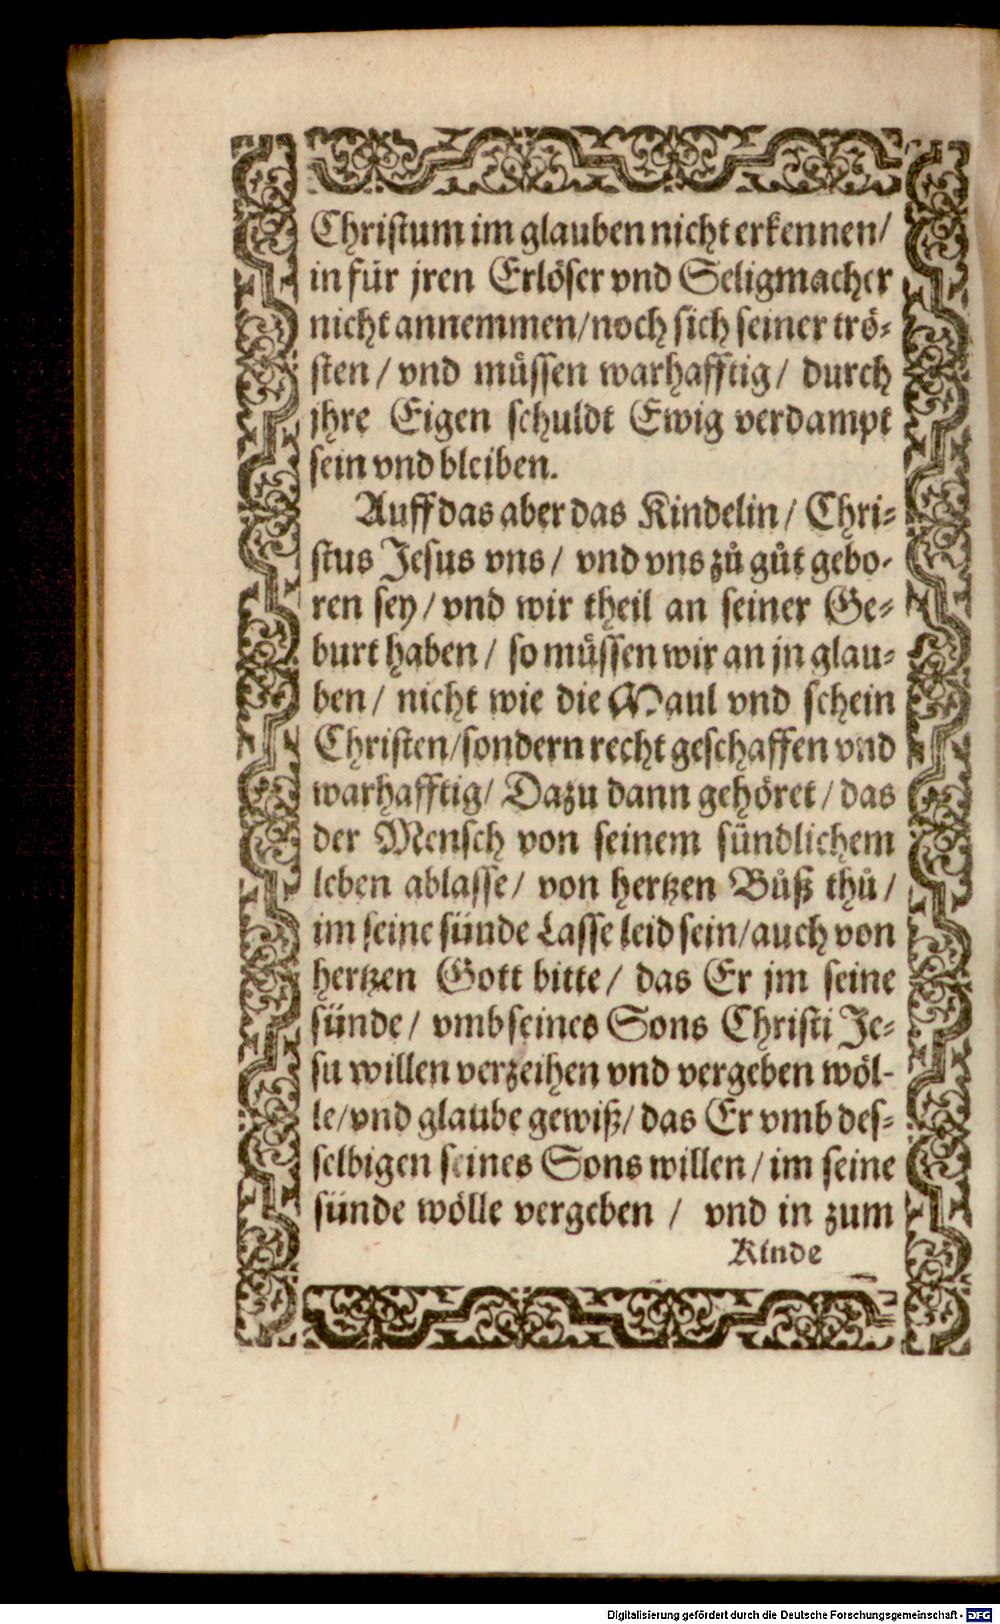 Christum im glauben nicht erkennen/
in für jren Erlöser vnd Seligmacher
nicht annemmen/noch sich seiner trö-
sten / vnd müssen warhafftig/ durch
jhre Eigen schuldt Ewig verdampt
sein vnd bleiben.
Auff das aber das Kindelin / Chri-
stus Jesus vns / vnd vns zů gůt gebo-
ren sey / vnd wir theil an seiner Ge-
burt haben / so müssen wir an jn glau-
ben / nicht wie die Maul vnd schein
Christen/sondern recht geschaffen vnd
warhafftig/ Dazu dann gehöret / das
der Mensch von seinem sündlichem
leben ablasse/ von hertzen Bůß thů /
im seine sünde Lasse leid sein/auch von
hertzen Gott bitte / das Er jm seine
sünde / vmb seines Sons Christi Je-
su willen verzeihen vnd vergeben wöl-
le/vnd glaube gewiß/ das Er vmb des-
selbigen seines Sons willen / im seine
sünde wölle vergeben / vnd in zum
Kinde
Digitalisierung gefördert durch die Deutsche Forschungsgemeinschaft - DFG